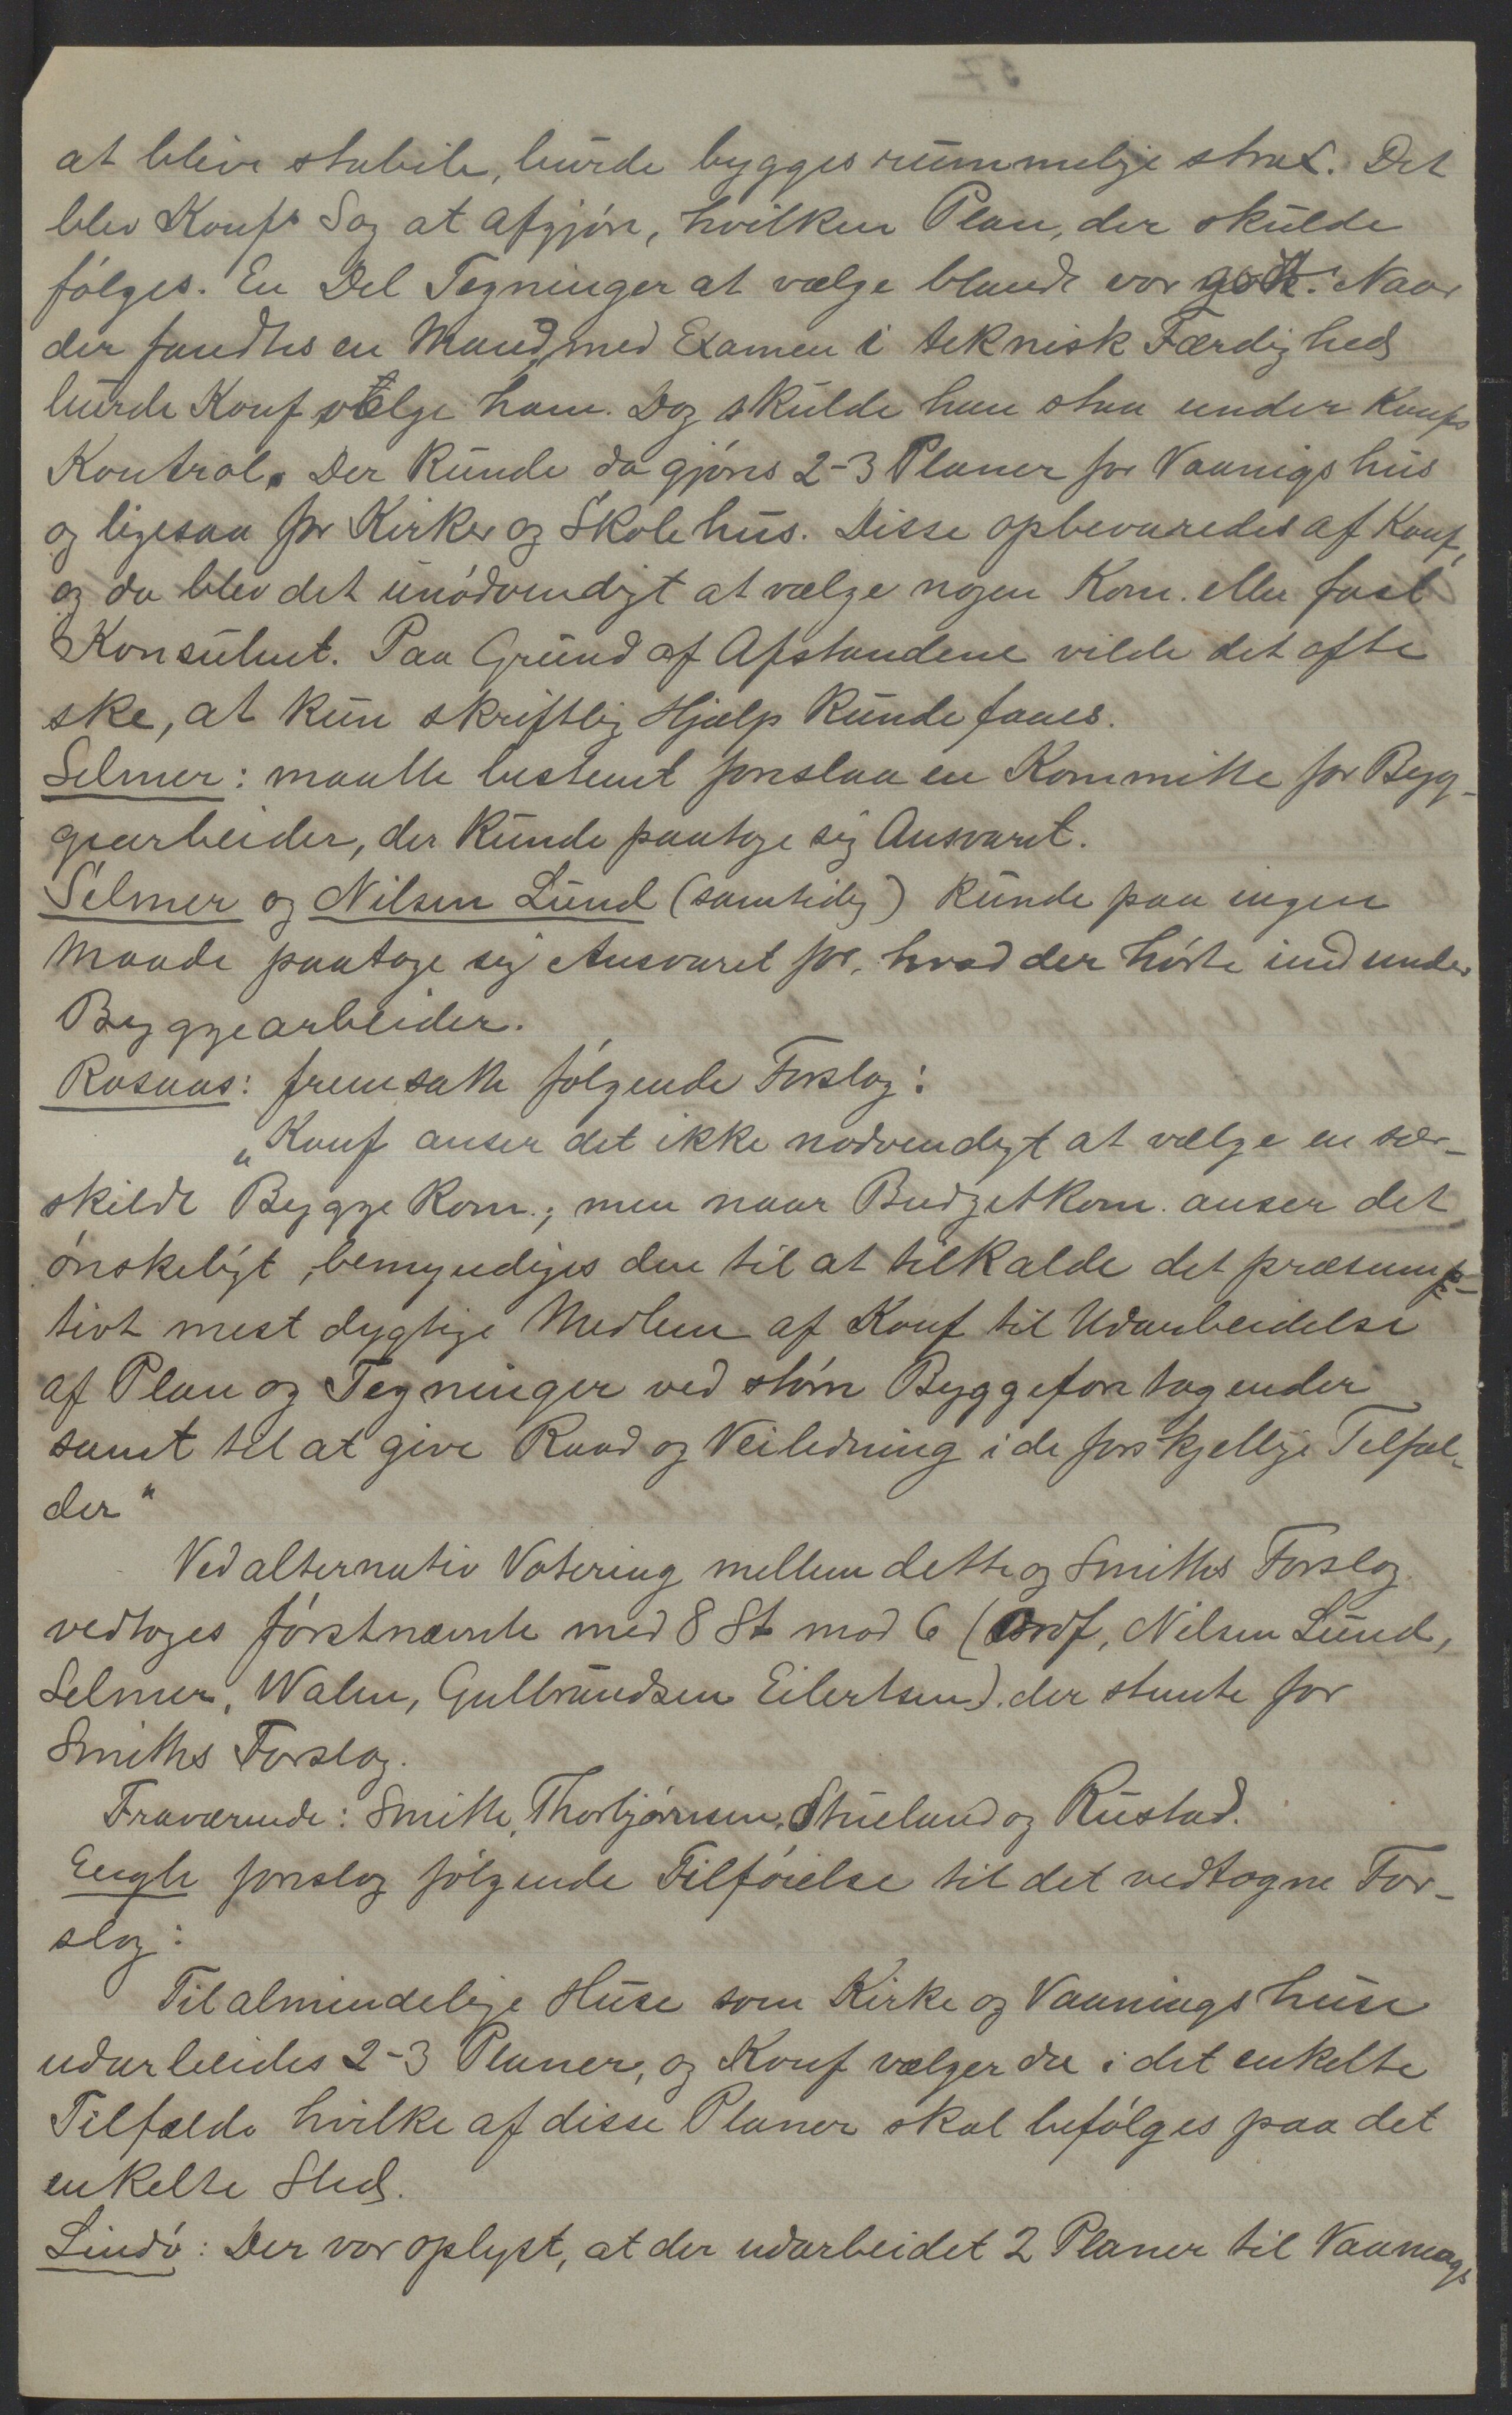 at blive stabile, burde bygges rummelige strax. Det
blev Konfs Sag at afgjøre, hvilken Plan, der skulde
følges. En Del Tegninger at vælge blandt var godt. Naar
der fandtes en Mand med Examen i teknisk Færdighed
burde Konf vælge ham. Dog skulde han staa under Konfs
Kontrol. Der kunde da gjøres 2-3 Planer for Vaanigshus
og ligesaa for Kirker og Skolehus. Disse opbevaredes af Konf,
og da blev det unødvendigt at vælge nogen Kom. eller fast
Konsulent. Paa Grund af Afstandene vilde det ofte
ske, at kun skriftlig Hjælp kunde faaes.
Selmer: maatte bestemt foreslaa en Kommitte for Byg-
gearbeider, der kunde paatage sig Ansvaret.
Selmer og Nilsen Lund (samtidig) kunde paa ingen
Maade paatage sig Ansvaret for, hvad der hørte ind under
Byggearbeider.
Rosaas: fremsatte følgende Forslag:
„Konf anser det ikke nødvendigt at vælge en sær-
skildt Byggekom.; men naar Budgetkom. anser det
ønskeligt, bemyndiges den til at tilkalde det præsump-
tivt mest dygtige Medlem af Konf til Udarbeidelse
af Plan og Tegninger ved større Byggeforetagender
samt til at give Raad og Veiledning i de forskjellige Tilfæl-
der"
Ved alternativ Votering mellem dette og Smiths Forslag
vedtoges førstnævnte med 8 St mod 6 (Ordf, Nilsen Lund,
Selmer, Walen, Gulbrandsen Eilertsen). der stemte for
Smiths Forslag.
Fraværende: Smith, Thorbjørnsen, Stueland og Rustad.
Engh foreslog følgende Tilføielse til det vedtagne For-
slag:
Til almindelige Huse som Kirke og Vaaningshuse
udarbeides 2-3 Planer, og Konf vælger da i det enkelte
Tilfælde hvilke af disse Planer skal befølges paa det
enkelte Sted.
Lindø: Der var oplyst, at der udarbeidet 2 Planer til Vaanings